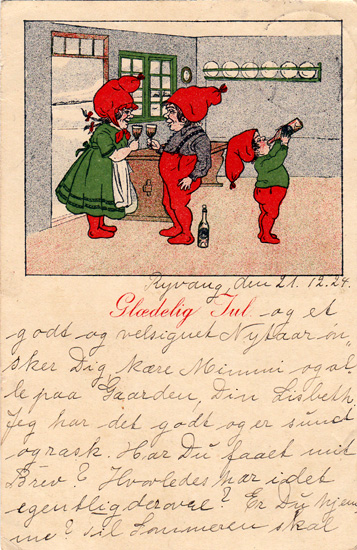 Ryvang, den 21. 12. 24.
Glædelig Jul og et
godt og velsignet Nytaar øn,
sker Dig kære Mimmi og al,
le paa Gaarden, Din Lisbeth,
Jeg har det godt og er sund
og rask. Har Du faaet mit
Brev? Hvorledes har i det
egentlig derovre? Er Du hjem
me? til Sommeren skal